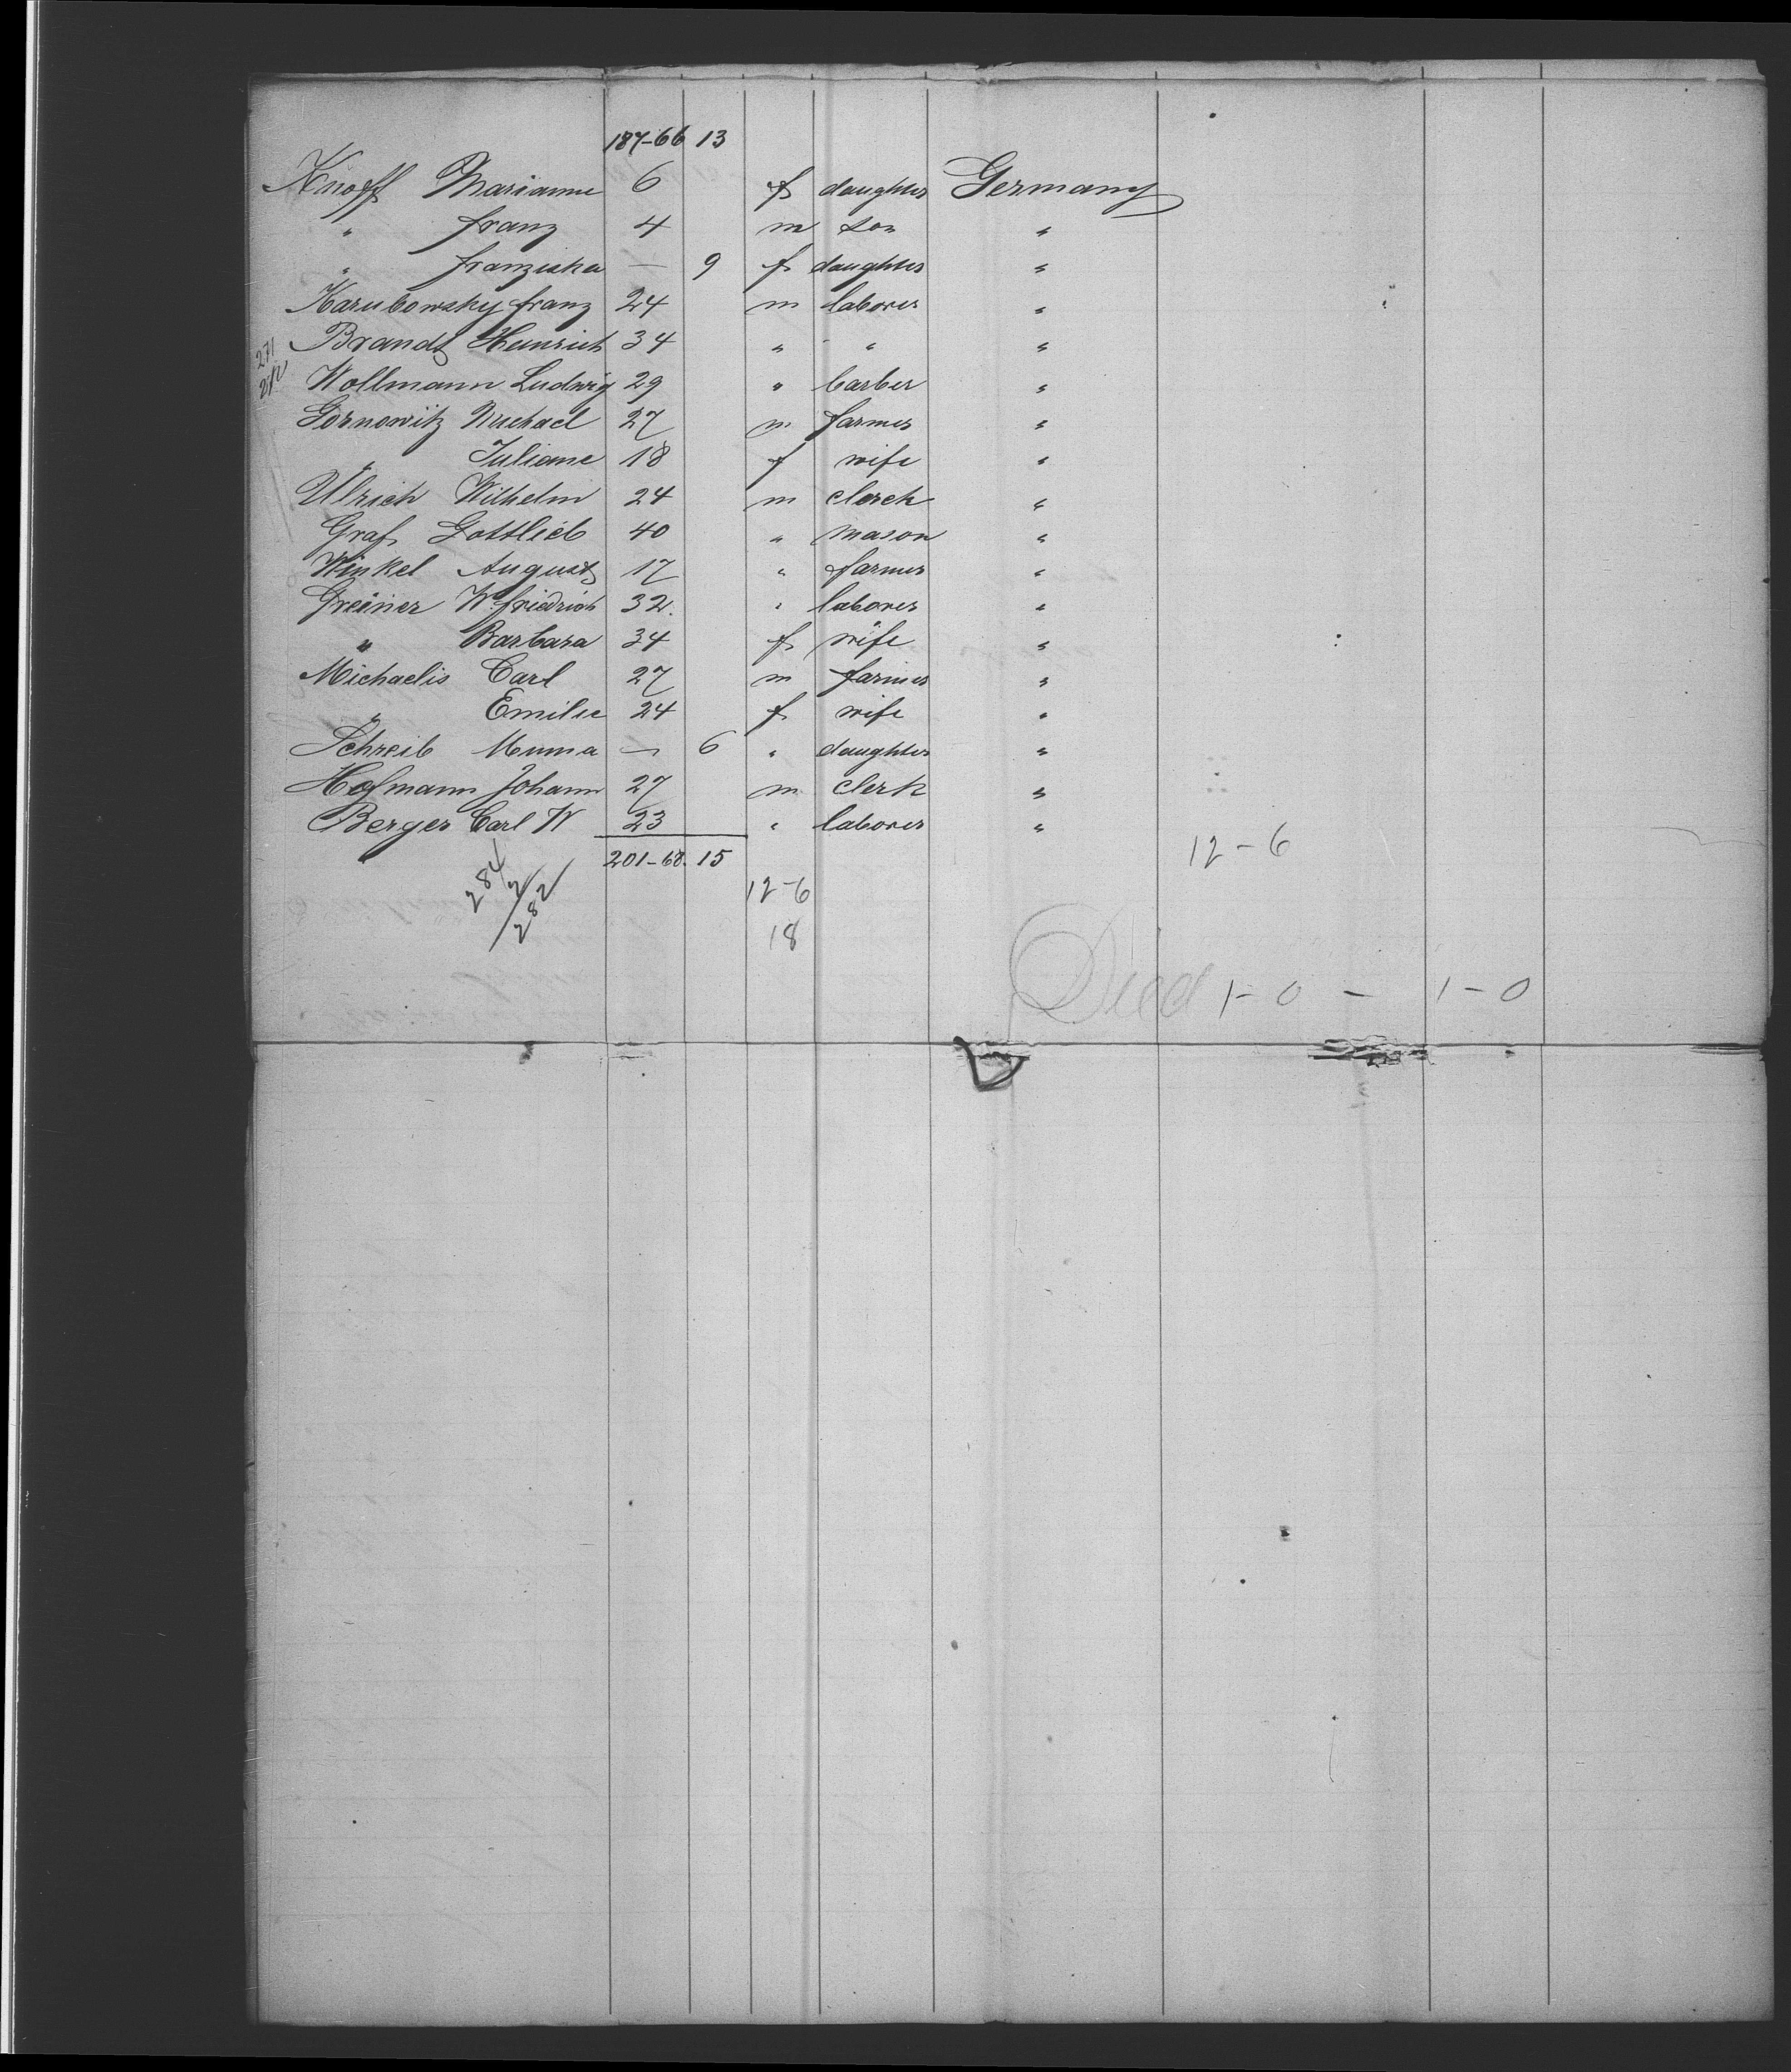 187-66 13
Knoff Marianne 6 f daughter Germany
" Franz 4 m son "
" Franziska — 9 f daughter "
Karubowsky Franz 24 m laborer "
Brandt Heinrich 34 " " "
271
Wollmann Ludwig 29 " barber "
Gornowitz Michael 27 m farmer "
" Juliane 18 f wife "
Ulrich Wilhelm 24 m clerck "
Graf Gottlieb 40 " mason "
Winkel August 17 " farmer "
Greiner W. Friedrich 32. " laborer "
" Barbara 34 f wife "
Michaelis Carl 27 m farmer "
" Emilie 24 f wife "
Schreib — 6 " daughter "
Hofmann Johann 27 m clerk "
Berger Carl W 23 " laborer "
201-68. 15 12-6
284 12-6
2
282 18
Died 1-0 - 1-0